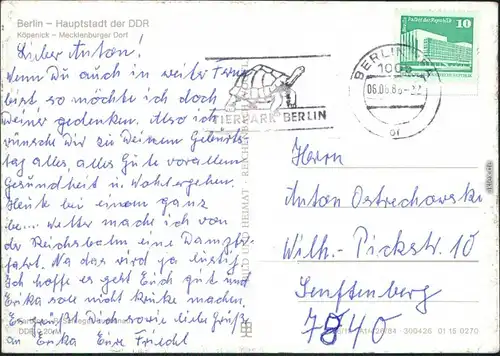 Berlin – Hauptstadt der DDR
Köpenick – Mecklenburger Dorf
Lieber Anton!
Wenn Du auch in weiter Ferne
bist, so möchte ich doch
Deiner gedenken. Also ich
wünsche Dir zu Deinem Geburts-
tag alles alles Gute vor allem
Gesundheit u. Wohlergehen.
Heute bei einem ganz
be... Wetter mache ich von
der Reichsbahn eine Dampfer-
fahrt. Na das wird ja lustig
Ich hoffe es geht Euch gut und
Erika soll nicht kranke machen.
Es grüßt Dich sowie liebe Grüße
an Erika Eure Friedel
TIERPARK BERLIN
BERLIN
06.06.86
10
Palast der Republik
BILD UND HEIMAT
Herrn
Anton Ostrechowski
Wilh.-Pickstr. 10
Senftenberg
7840
300426 01 15 0270